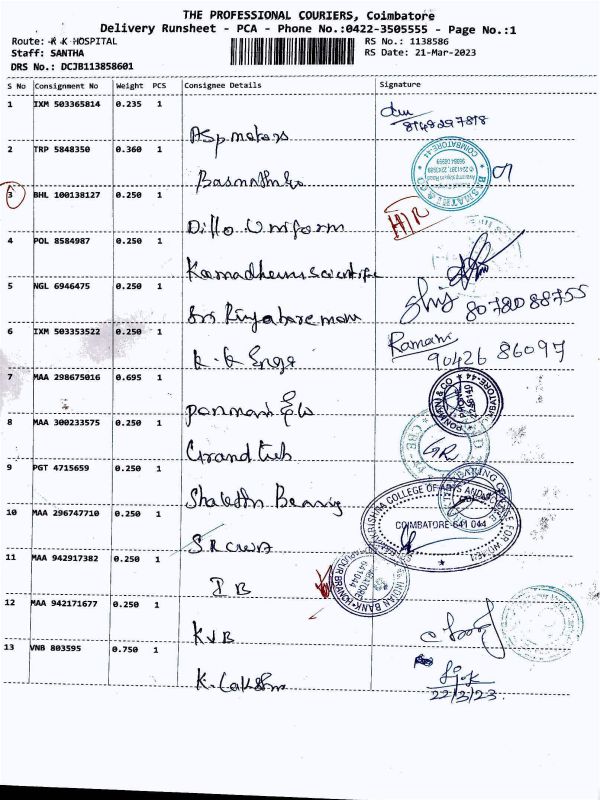 THE PROFESSIONAL COURIERS, Coimbatore
Delivery Runsheet - PCA - Phone No.:0422-3505555 - Page No.:1
Route: R K HOSPITAL
RS No.: 1138586
Staff: SANTHA
RS Date: 21-Mar-2023
DRS No.: DCJB113858601
S No Consignment No Weight PCS Consignee Details Signature
1 IXM 503365814 0.235 1
8148297818
Asp motors
2 TRP 5848350 0.360 1
COIMBATORE-44
BASMATHI & CO
3 BHL 100138127 0.250 1
Dillo Uniform
4 POL 8584987 0.250 1
Kamadhenu scientific
5 NGL 6946475 0.250 1
8078088755
6 IXM 503353522 0.250 1
Ramani
90426 86097
K. K Engg
7 MAA 298675016 0.695 1
COIMBATORE-44
8 MAA 300233575 0.250 1
Grand
GR
9 PGT 4715659 0.250 1
10 MAA 296747710 0.250 1
KRISHNA COLLEGE OF ARTS AND
COIMBATORE-641 044
SRCW
11 MAA 942917382 0.250 1
INDIAN BANK
641044
IB
12 MAA 942171677 0.250 1
KVB
13 VNB 803595 0.750 1
22/3/23
K. Lakshm